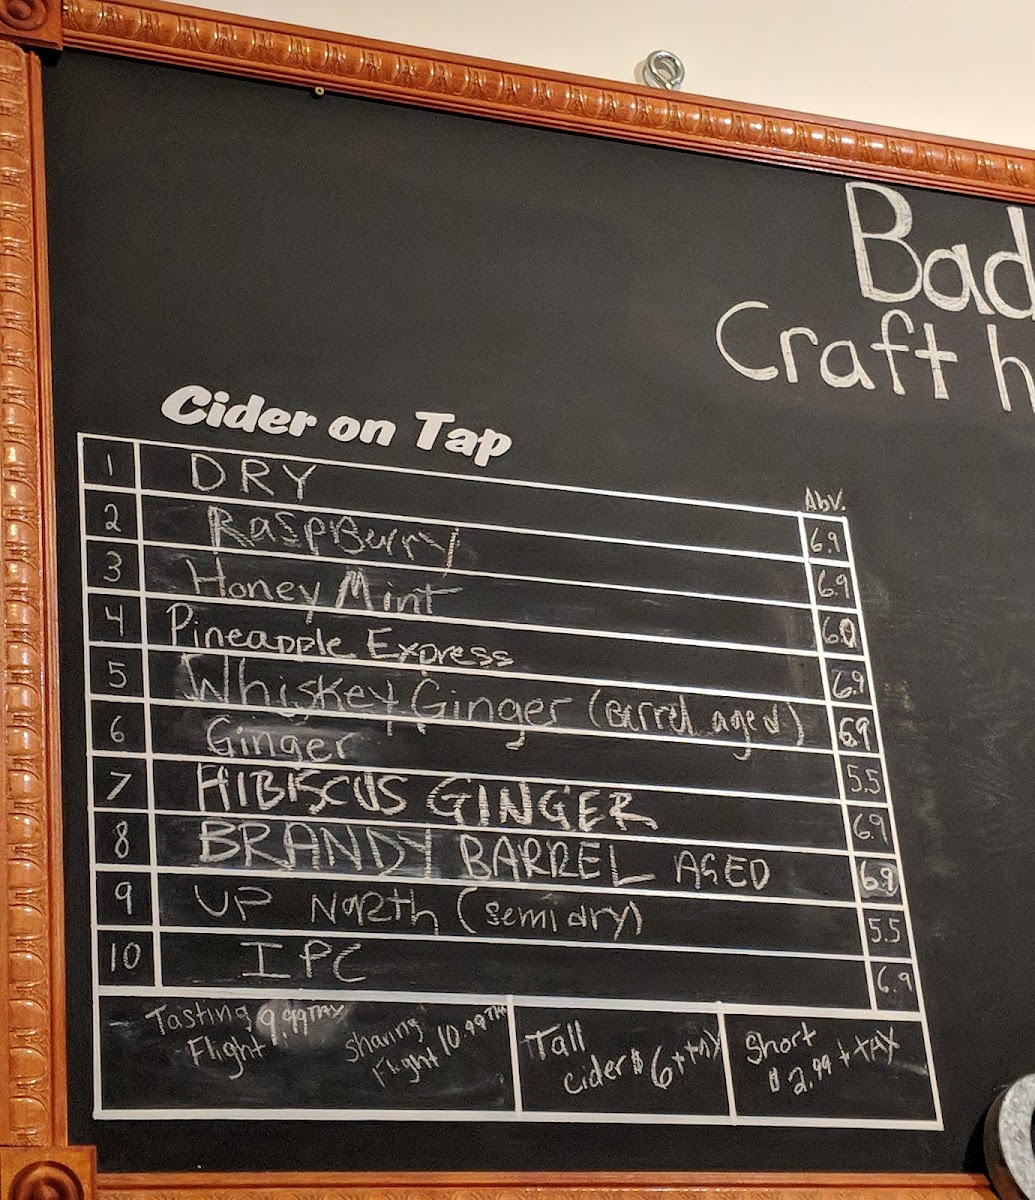 Bad
Craft h
Cider on Tap
Abv.
1 DRY 6.9
2 RaspBerry 6.9
3 Honey Mint 6.0
4 Pineapple Express 6.9
5 Whiskey Ginger (barrel aged) 6.9
6 Ginger 5.5
7 HIBISCUS GINGER 6.9
8 BRANDY BARREL AGED 6.9
9 UP NORTH (semi dry) 5.5
10 IPC 6.9
Tasting 9.99 TAX
Flight
Sharing
Flight 10.99
Tall
cider $ 6 + tax
Short
$ 2.99 + TAX